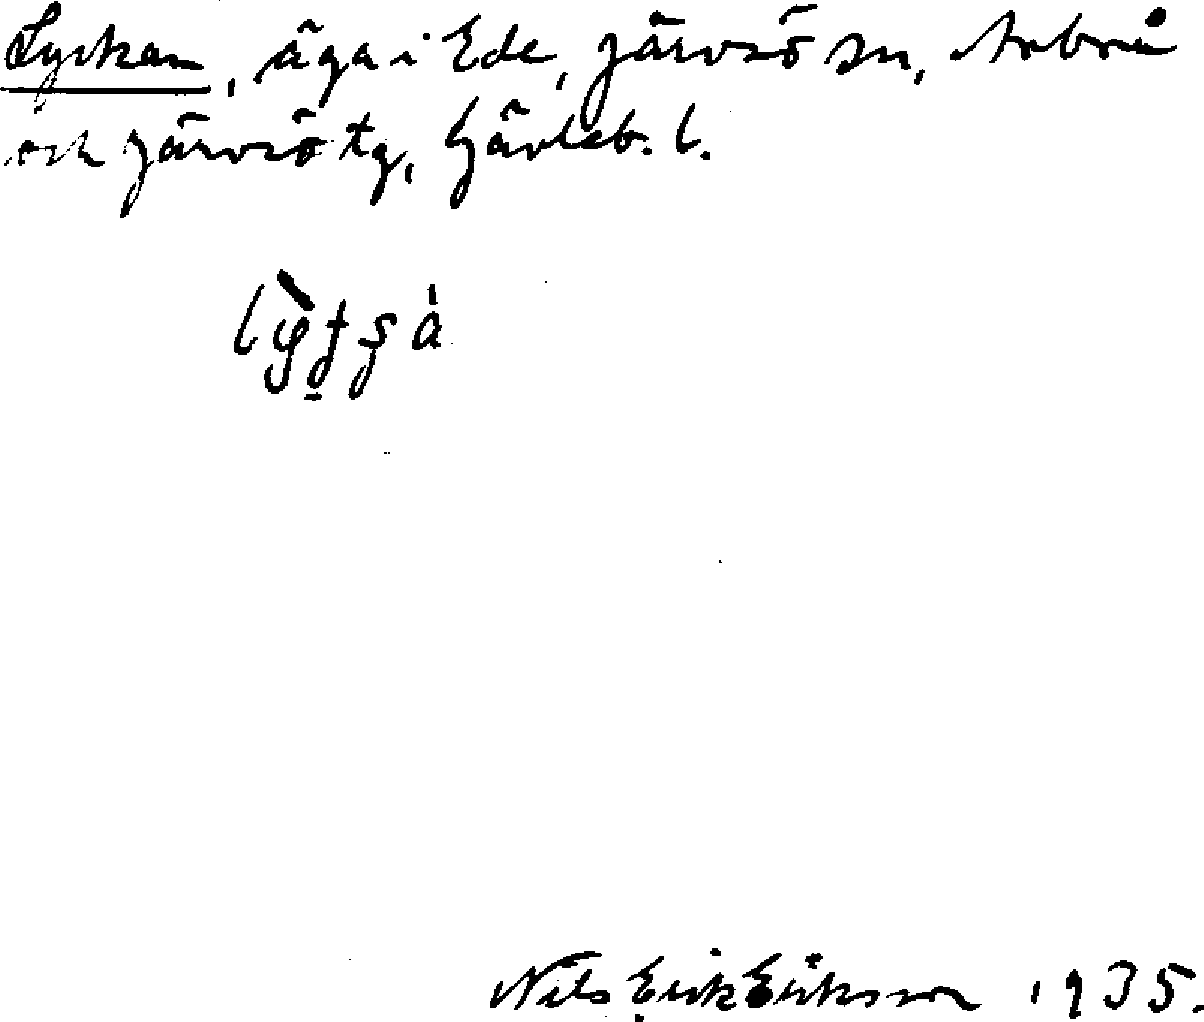 Lyckan, äga i Ede, Järvsö sn, Arbrå
och Järvsö tg, Gävleb. l.
Nils Erik Eriksson 1935.